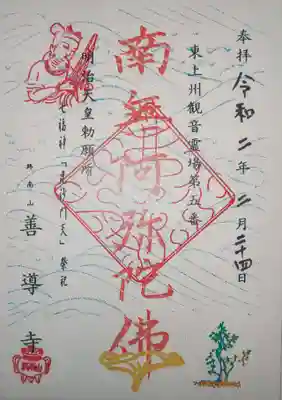 奉拝 令和二年二月二十四日
東上州観音霊場第五番
南無阿弥陀佛
明治天皇勅願所
七福神「毘沙門天」奉祀
終南山 善導寺